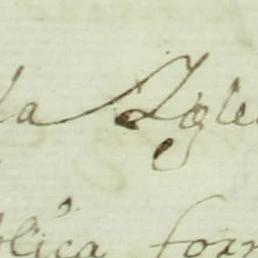 la Igle
blica form